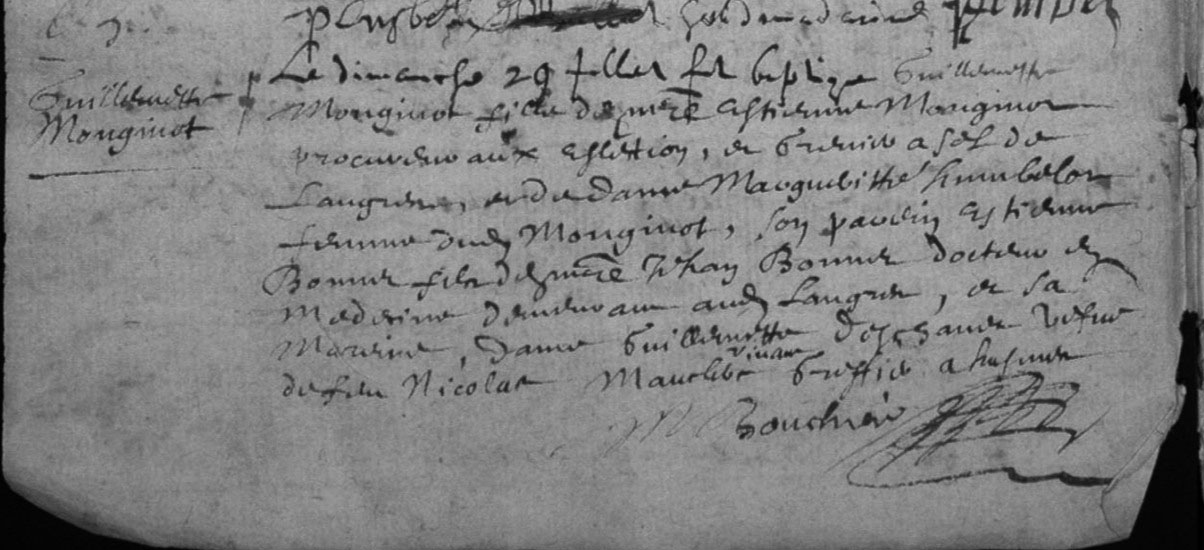 Guillemette
Monginot
Le dimanche 29 Juillet fut baptizé Guillemette
Monginot fille de mre Estienne Monginot
procureur aux eslection, et Grenier a sel de
Langres, et de dame Margueritte humbelot
femme dud Monginot, son parein Estienne
Bonnet filz de mre Jehan Bonnet docteur en
Medecine demeurant aud Langres, et sa
Mareine, dame Guillemette deschanet vefve
de feu Nicolas Mauclere vivant Greffier a
Bouchier